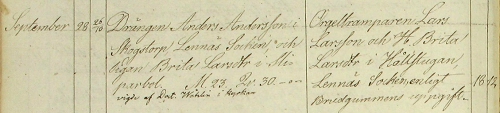 September 28 26/10 Drängen Anders Andersson i
Skogstorp, Lennäs Socken, och
Pigan Brita Larsdr i
M. 23. Qv. 30.
vigde af Doct. i kyrkan
Orgeltramparen Lars
Larsson och H. Brita
Larsdr i Hållstugan,
Lennäs Socken, enligt
Brudgummens uppgift.
18 12